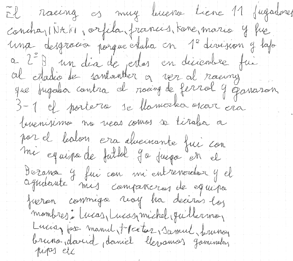 El racing es muy bueno tiene 11 jugadores
concha, INAKI, orfila, francis, Kore, mario y fue
una desgracia porque estaba en 1º division y bajo
a 2ª B un dia de estos en diciembre fui
al estadio de santander a ver al racing
que jugaba contra el racing de ferrol y ganaron
3-1 el portero se llamaba oscar era
buenisimo no veas como se tiraba a
por el balon era alucinante fui con
mi equipo de futbol yo juego en el
Bezana y fui con mi entrenador y el
ayudante mis compañeros de equipo
fueron conmigo voy ha deciros los
nombres: Lucas, Lucas, michel, guillermo,
Lucia, jose manuel, Samuel, bruno,
bruno, david, daniel llevamos
pipas etc